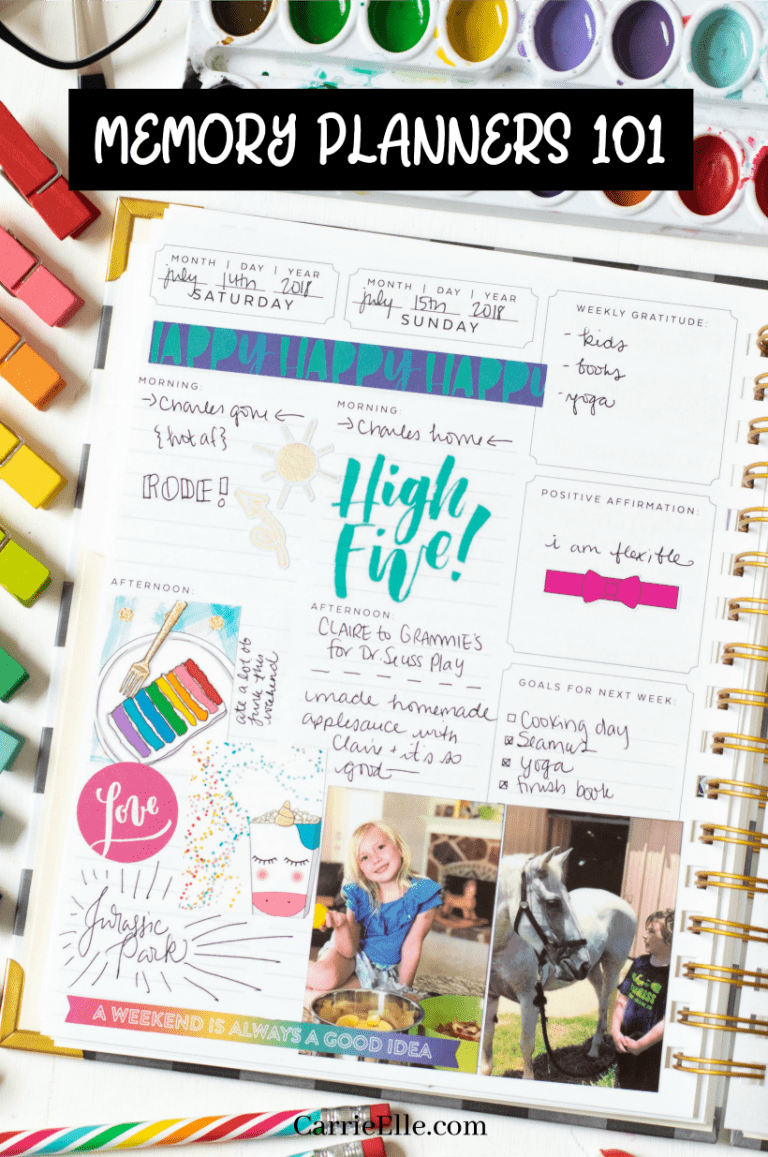 MEMORY PLANNERS 101
MONTH | DAY | YEAR
july 14th 2018
SATURDAY
MONTH | DAY | YEAR
july 15th 2018
SUNDAY
HAPPY HAPPY HAPPY
MORNING:
→Charles gone←
{hot af}
RODE!
MORNING:
→Charles home←
High
Five!
AFTERNOON:
ate a lot of
junk this
weekend
Love
Jurassic
Park
AFTERNOON:
CLAIRE to GRAMMIE'S
for Dr. Seuss Play
made homemade
applesauce with
Claire + it's so
good
A WEEKEND IS ALWAYS A GOOD IDEA
WEEKLY GRATITUDE:
- kids
- books
- yoga
POSITIVE AFFIRMATION:
i am flexible
GOALS FOR NEXT WEEK:
Cooking day
Seamus
yoga
finish book
CarrieElle.com